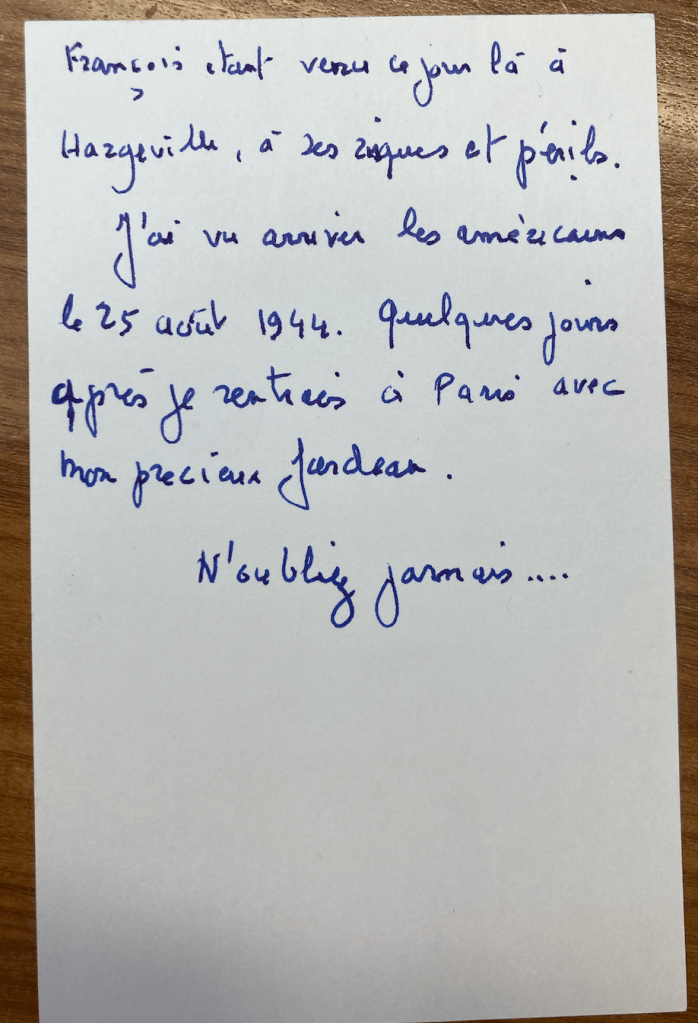 François etant venu ce jour là à
Hargeville, à ses risques et périls.
J'ai vu arriver les américains
le 25 août 1944. Quelques jours
après je rentrais à Paris avec
mon precieux fardeau.
N'oubliez jamais....